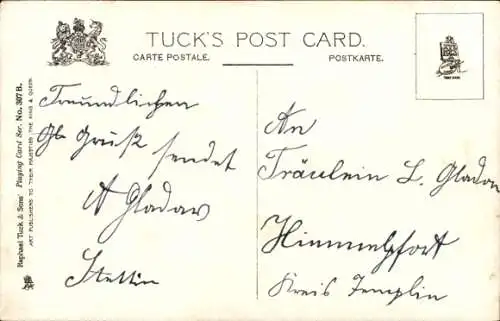 TUCK'S POST CARD.
CARTE POSTALE. POSTKARTE.
Raphael Tuck & Sons' Playing Card Ser. No. 307 B.
ART PUBLISHERS TO THEIR MAJESTIES THE KING & QUEEN.
Freundlichen
Gruß sendet
A Gladow
Stettin
An
Fräulein L. Gladow
Himmelpfort
Kreis Templin